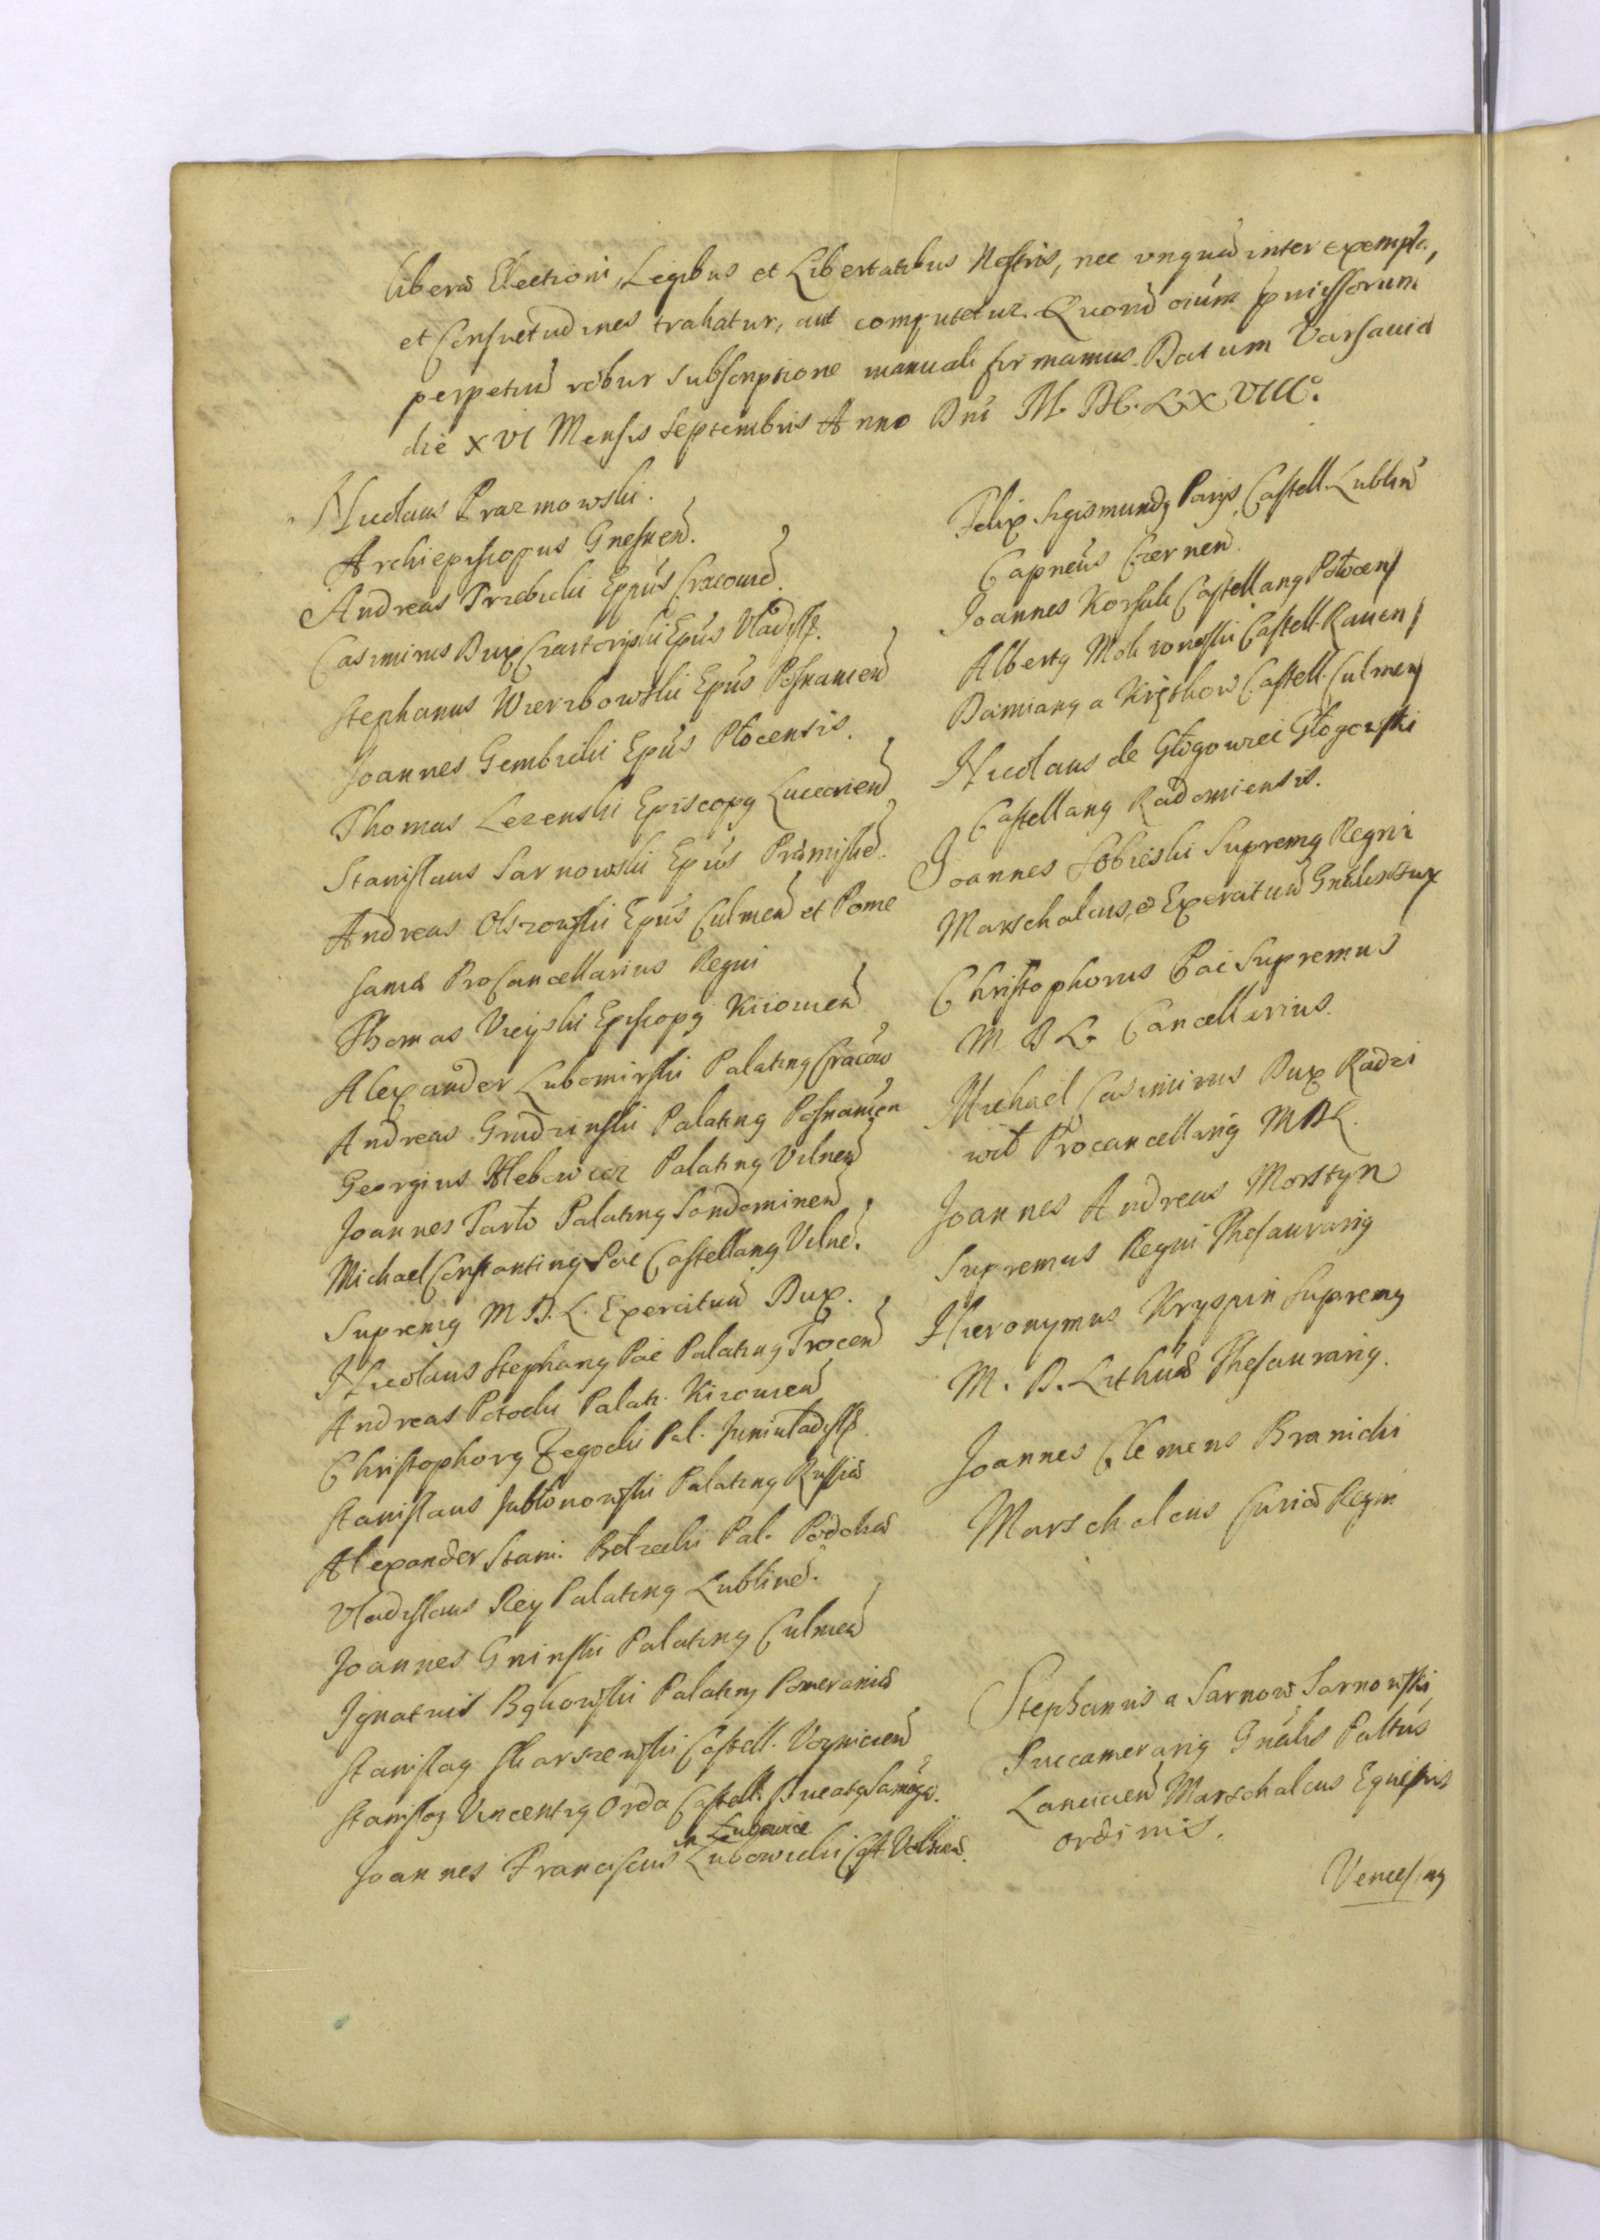 liberæ Electioni, Legibus et Libertatibus Nostris, nec unquā inter exempla,
et Consuetudines trahatur, aut computetur. Quorū oium præmissorum
perpetuū robur subscriptione manuali firmamus. Datum Varsaviæ
die XVI Mensis Septembris Anno Dni M. DC. LX VIII.
Nicolaus Prazmowski.
Archiepiscopus Gnesnen.
Andreas Trzebicki Eppus Cracovie.
Casimirus Dux Czartoryski Epus Vladisl.
Stephanus Wierzbowski Epus Posnanien
Joannes Gembicki Epus Płocensis.
Thomas Lezenski Episcopg Luceorien
Stanislaus Sarnowski Epus Præmislie.
Andreas Olszowski Epus Culmen et Pome
saniæ ProCancellarius Regni
Thomas Vieyski Episcopg Kiiovien
Alexander Lubomirski Palating Cracov
Andreas Grudzinski Palating Posnanien
Georgius Hlebowicz Palating Vilnen
Joannes Tarło Palating Sandomirien
Michael Constanting Pac Castellang Vilne.
Supremg M D. L. Exercituū Dux.
Nicolaus Stephang Pac Palating Trocen
Andreas Potocki Palati. Kiiovien
Christophorg Zegocki Pal. Juniuladisl.
Stanislaus Jabłonowski Palating Russiæ
Alexander Stani. Bełzecki Pal. Podoliæ
Vladislaus Rey Palating Lubline.
Joannes Gninski Palating Culmen
Ignatius Bąkowski Palating Pomeraniæ
Stanislag Skarszewski Castell. Voynicien
Stanislag Vincentig Orda Castell. Ducatg Samogi.
in Lubowice
Joannes Franciscus Lubowicki Cast. Volhiniæ.
Felix Sigismundg Parys Castell. Lublin
Capneus Czernen.
Joannes Korsak Castellang Połocen
Albertg Mokronoski Castell. Raven
Damiang a Kretkow Castell. Culmen
Nicolaus de Głogowiec Głogowski
Castellang Radomiensis.
Joannes Sobieski Supremg Regni
Marschalcus, & Exercituū Gnalis Dux
Christophorus Pac Supremus
M D L. Cancellarius.
Michael Casimirus Dux Radzi
wił Procancellarig MDL.
Joannes Andreas Morstyn
Supremus Regni Thesaurarig
Hieronymus Kryspin Supremg
M. D. Lithua Thesaurarig.
Joannes Clemens Branicki
Marschalcus Curiæ Regni
Stephanus a Sarnow Sarnowski
Succamerarig Gnalis Paltus
Lancicien Marschalcus Equestris
ordinis.
Vencesl ag